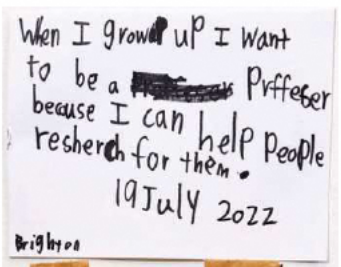 When I grow up I want
to be a Prffeser
because I can help people
resherch for them.
19 July 2022
Brighton